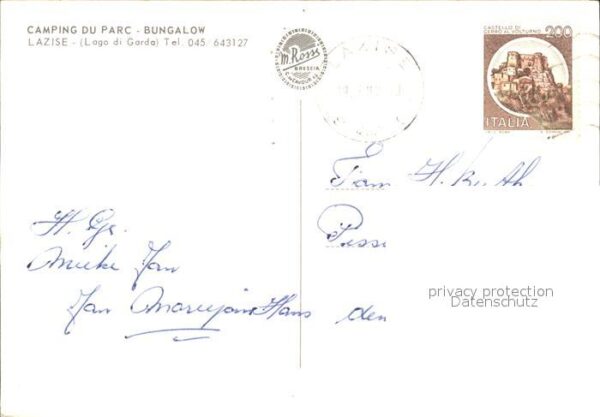 CAMPING DU PARC - BUNGALOW
LAZISE - (Lago di Garda) Tel. 045 643127
m. Rossi
BRESCIA
LAZISE
CASTELLO DI
CERRO AL VOLTURNO
200
ITALIA
Fam H.
H. Gr.
Mieke Jan
Jan Marijan Hans
den
privacy protection
Datenschutz